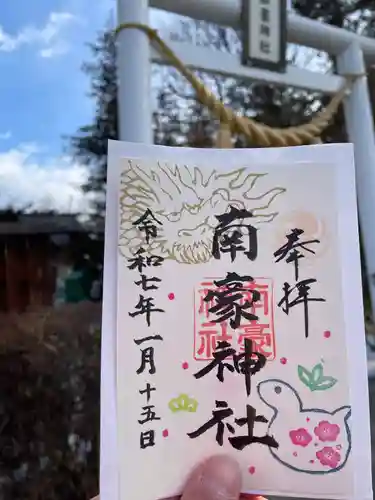 奉拝
南豪神社
令和七年一月十五日
南豪
神社